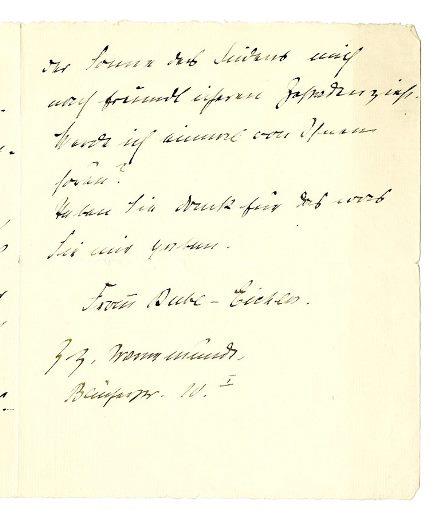 der Sonne des Südens mich
nach freundlicheren Gestaden zieht.
Werde ich einmal von Ihnen
hören?
Haben Sie dank für das was
Sie mir gaben.
Frau
z. Z. Warnemünde.
Blücherstr. 10. I